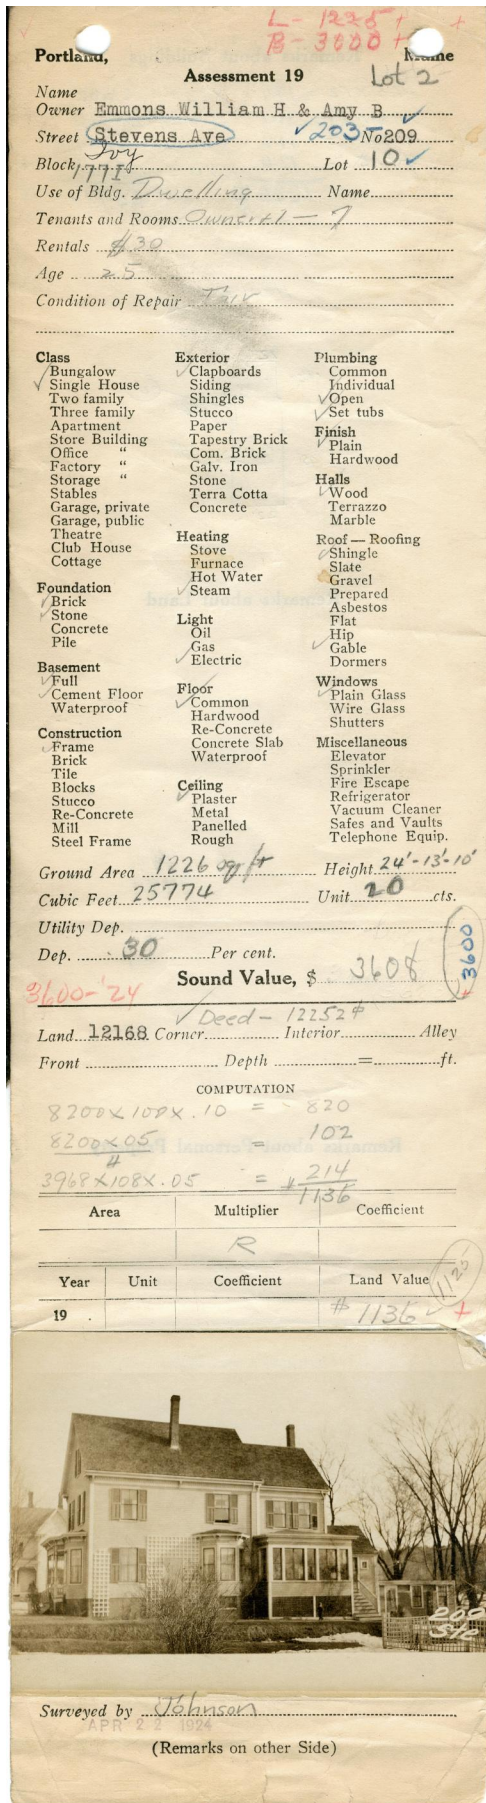 L - 1225 +
B - 3000 +
Portland, Maine
Assessment 19 Lot 2
Name
Owner Emmons William H & Amy B
Street Stevens Ave 203- No 209
Ivy
Block 177I Lot 10
Use of Bldg. Dwelling Name
Tenants and Rooms Owner + 1 - 7
Rentals $30
Age 25
Condition of Repair Fair
Class
Bungalow
Single House
Two family
Three family
Apartment
Store Building
Office "
Factory "
Storage "
Stables
Garage, private
Garage, public
Theatre
Club House
Cottage
Foundation
Brick
Stone
Concrete
Pile
Basement
Full
Cement Floor
Waterproof
Construction
Frame
Brick
Tile
Blocks
Stucco
Re-Concrete
Mill
Steel Frame
Exterior
Clapboards
Siding
Shingles
Stucco
Paper
Tapestry Brick
Com. Brick
Galv. Iron
Stone
Terra Cotta
Concrete
Heating
Stove
Furnace
Hot Water
Steam
Light
Oil
Gas
Electric
Floor
Common
Hardwood
Re-Concrete
Concrete Slab
Waterproof
Ceiling
Plaster
Metal
Panelled
Rough
Plumbing
Common
Individual
Open
Set tubs
Finish
Plain
Hardwood
Halls
Wood
Terrazzo
Marble
Roof — Roofing
Shingle
Slate
Gravel
Prepared
Asbestos
Flat
Hip
Gable
Dormers
Windows
Plain Glass
Wire Glass
Shutters
Miscellaneous
Elevator
Sprinkler
Fire Escape
Refrigerator
Vacuum Cleaner
Safes and Vaults
Telephone Equip.
Ground Area 1226 sq ft Height 24'-13'-10'
Cubic Feet 25774 Unit 20 cts.
Utility Dep.
Dep. 30 Per cent.
Sound Value, $ 3608 + 3600
3600 - '24
Deed - 12252
Land 12168 Corner Interior Alley
Front Depth = ft.
COMPUTATION
8200 x 100 x .10 = 820
8200 x 05 = 102
4
3968 x 108 x .05 = 214
$ 1136
Area Multiplier Coefficient
R
Year Unit Coefficient Land Value 1125
19 $ 1136 +
Surveyed by Johnson
APR 22 1924
(Remarks on other Side)